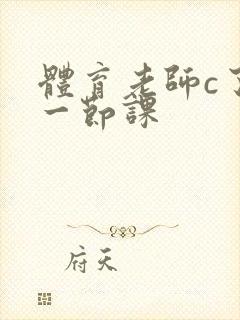 體育老師c了
一節課
府天